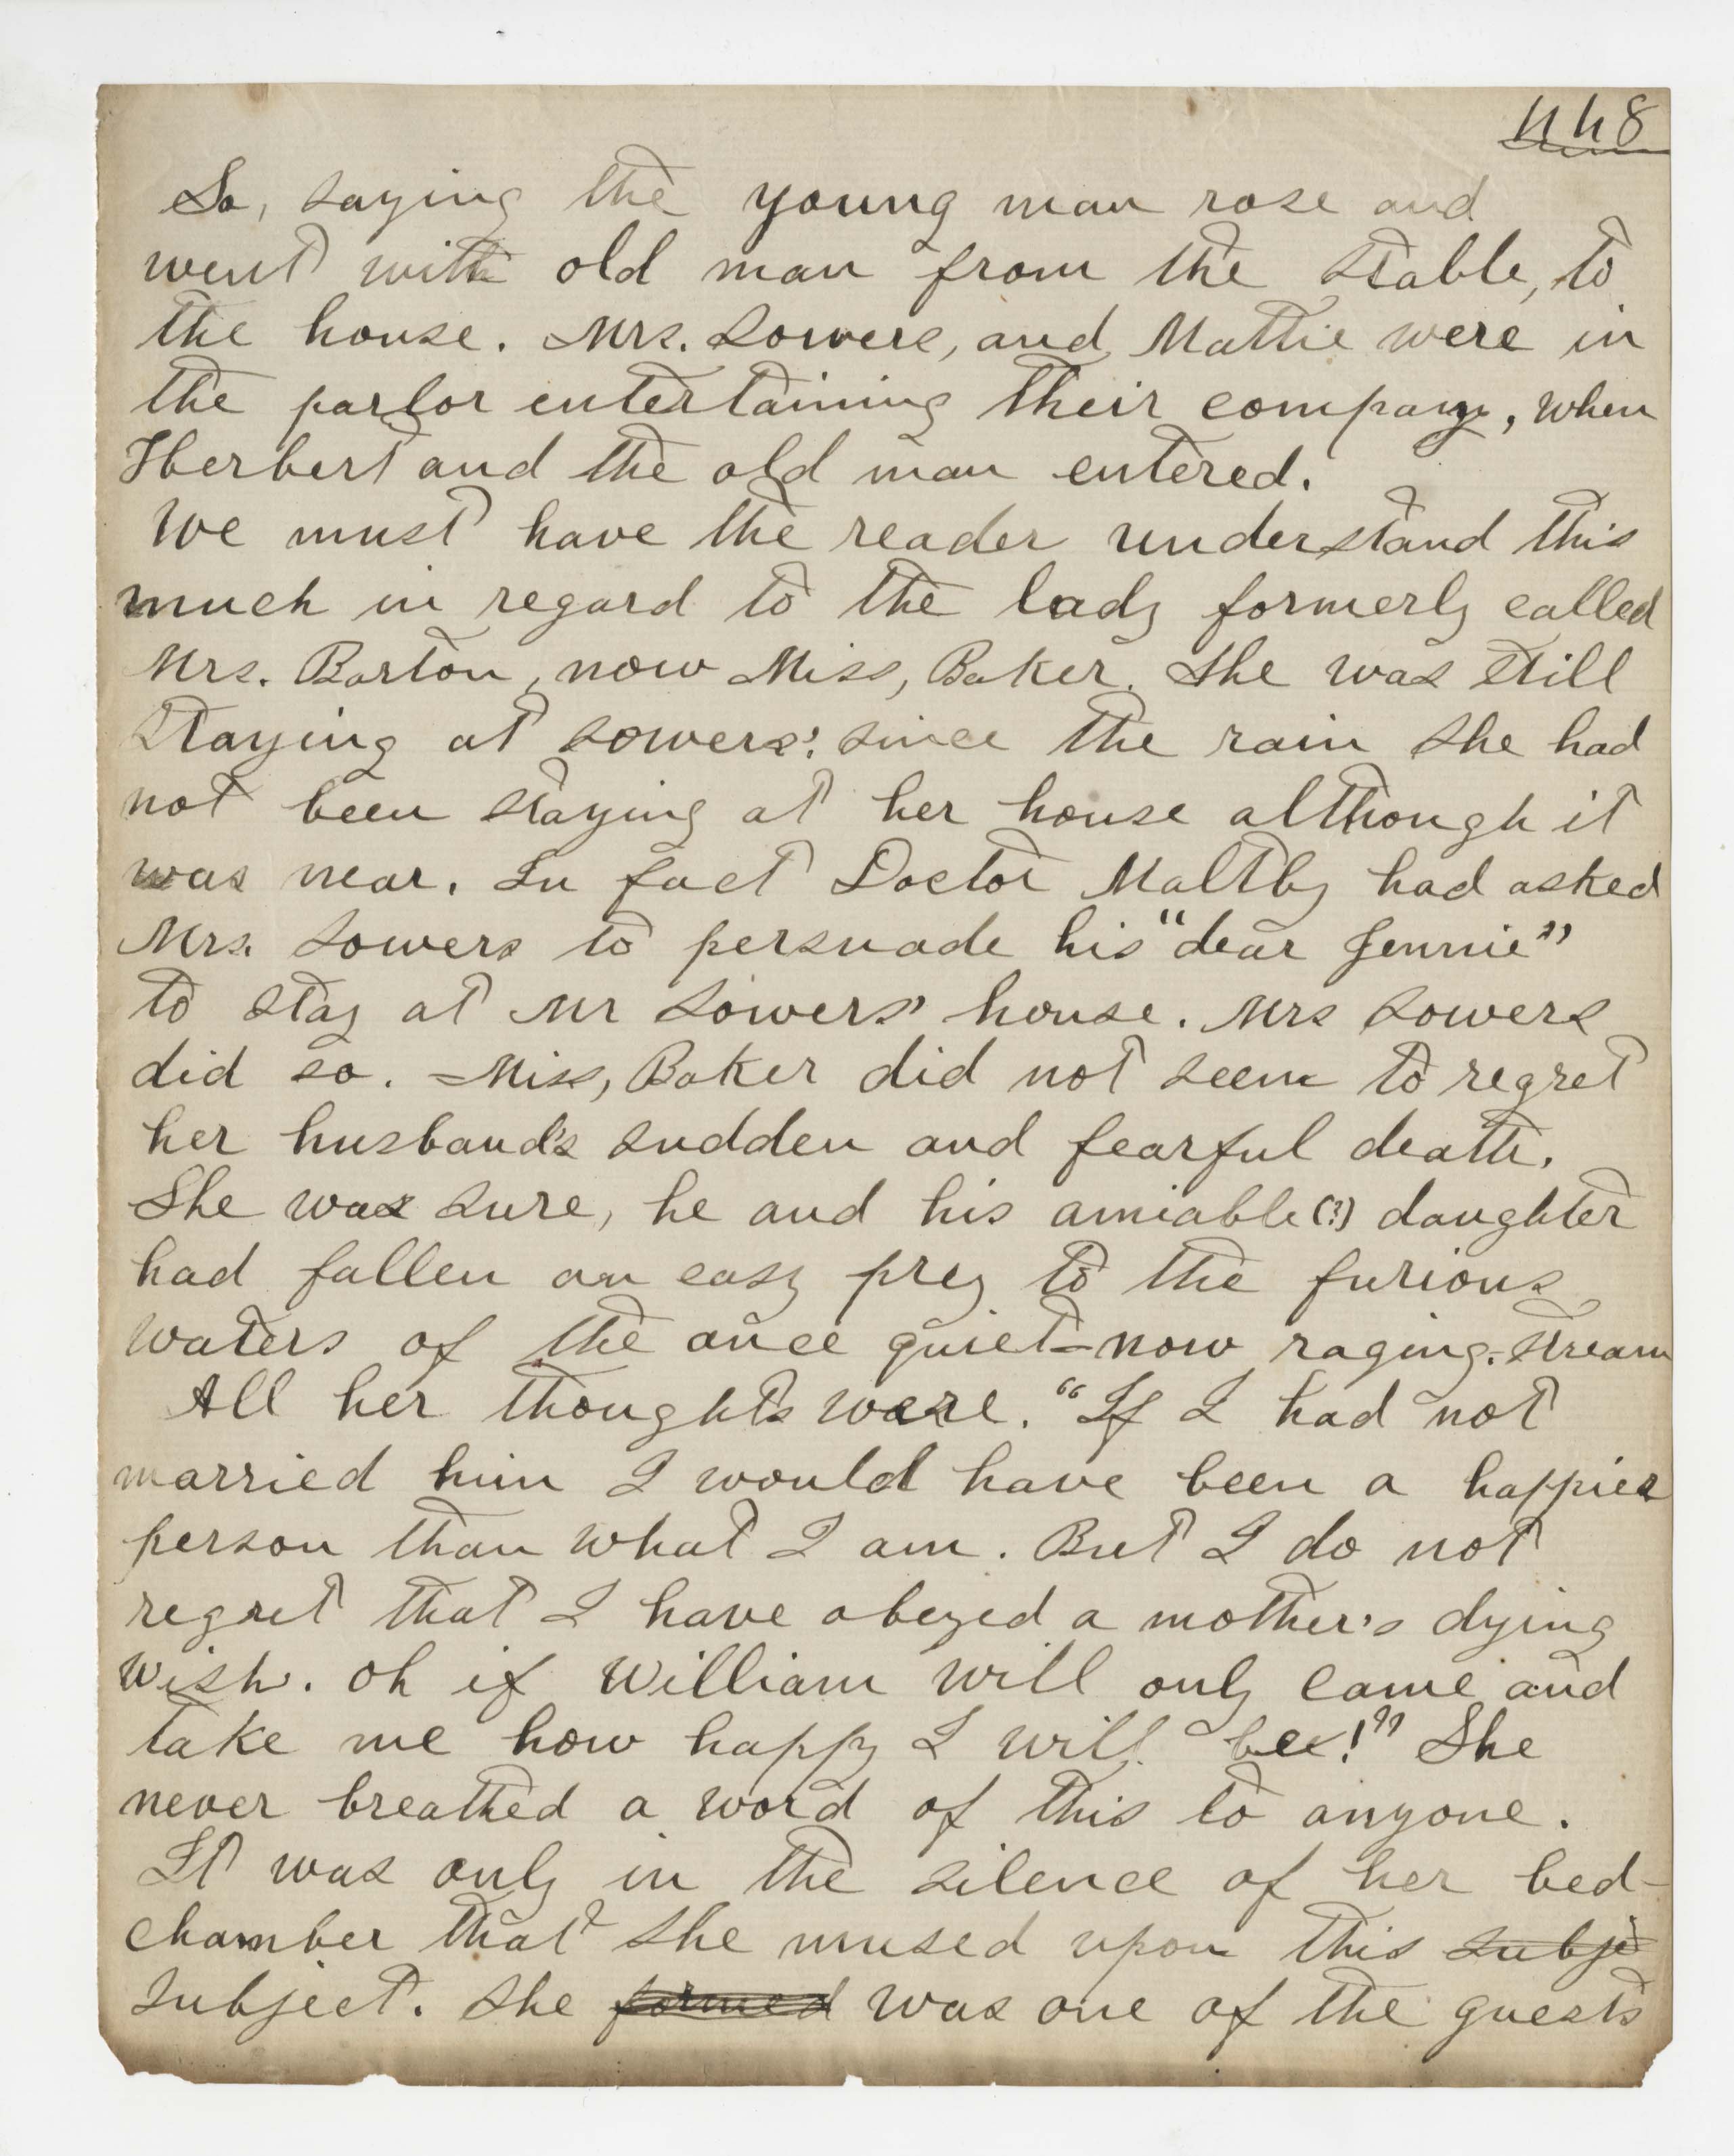 448
So, saying the young man rose and
went with old man from the stable, to
the house. Mrs. Sowers, and Mattie were in
the parlor entertaining their company, when
Herbert and the old man entered.
We must have the reader understand this
much in regard to the lady formerly called
Mrs. Barton, now Miss, Baker. She was still
staying at Sowers'. since the rain she had
not been staying at her house although it
was near. In fact Doctor Maltby had asked
Mrs. Sowers to persuade his "dear Jennie"
to stay at Mr Sowers' house. Mrs Sowers
did so. Miss, Baker did not seem to regret
her husband's sudden and fearful death.
She was sure, he and his amiable(?) daughter
had fallen an easy prey to the furious
waters of the once quiet-now raging-stream
All her thoughts were. "If I had not
married him I would have been a happier
person than what I am. But I do not
regret that I have obeyed a mother's dying
wish. Oh if William will only come and
take me how happy I will be!" She
never breathed a word of this to anyone.
It was only in the silence of her bed-
chamber that she mused upon this subje
subject. She formed was one of the guests